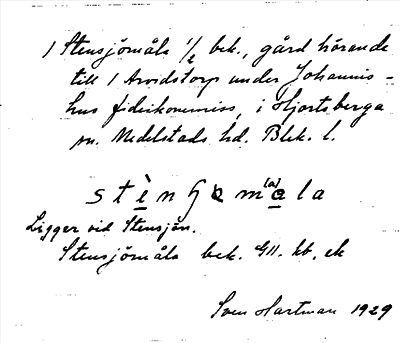 1 Stensjömåla 1/2 bek., gård hörande
till 1 Arvidstorp under Johannis-
hus fideikommiss, i Hjortsberga
sn. Medelstads hd. Blek. l.
Ligger vid Stensjön.
Stensjömåla bek. GH. kb, ek
Sven Hartman 1929